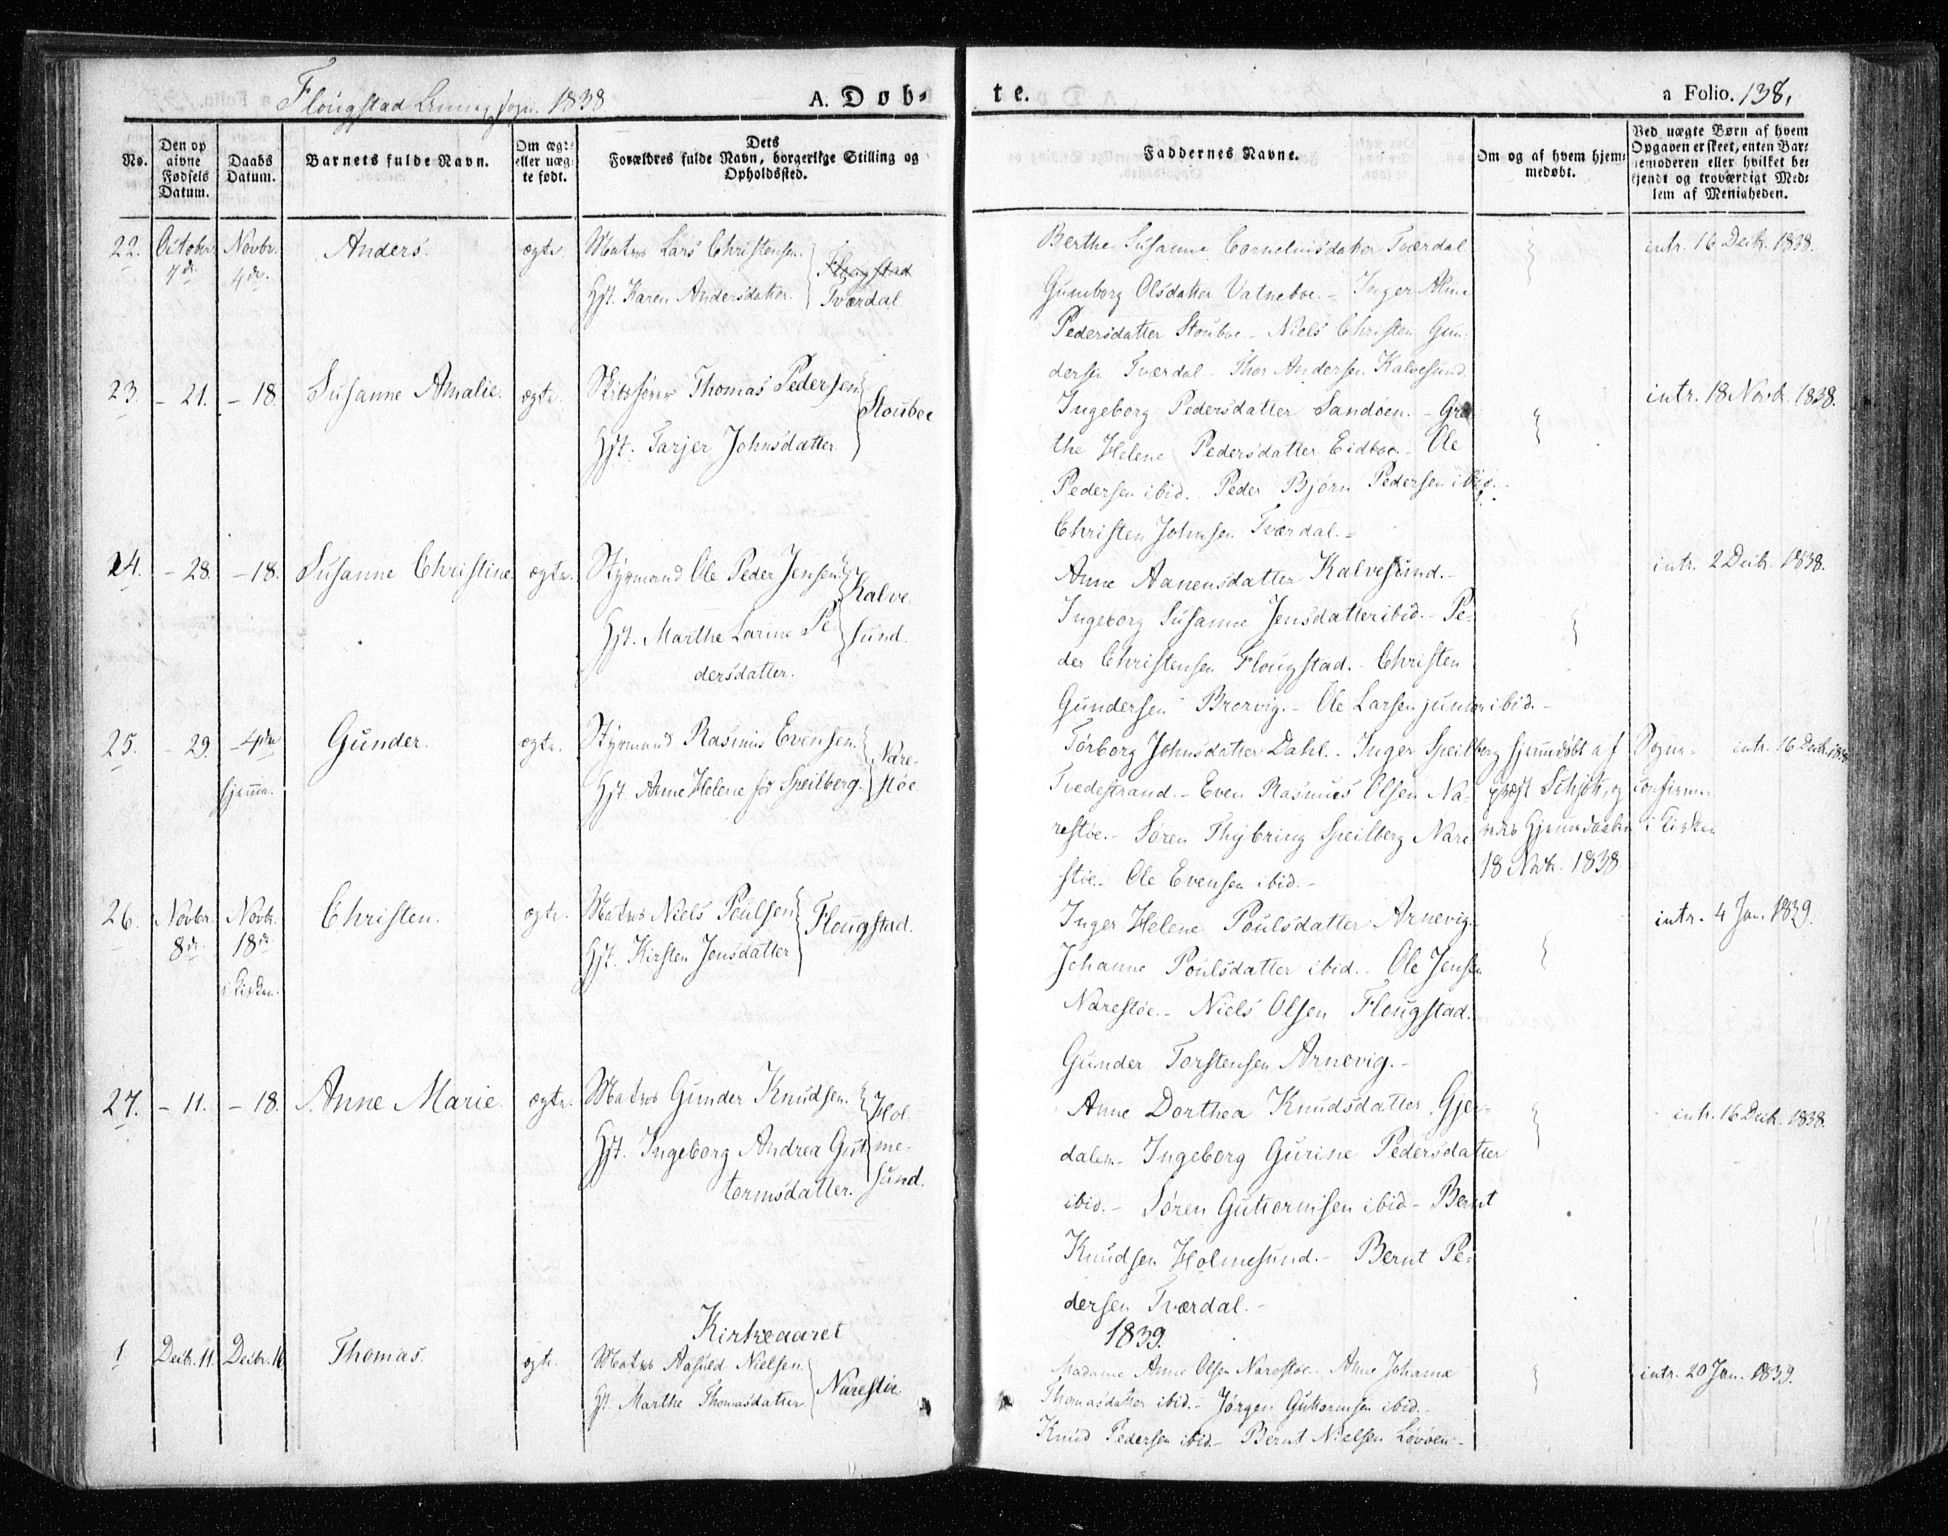 Flougstad sogn. 1838
A. Døb-
te.
a Folio. 138,
No.
Den op
givne
Fødsels
Datum.
Daabs
Datum.
Barnets fulde Navn.
Om ægte
eller uæg-
te født.
Dets
Forældres fulde Navn, borgerlige Stilling og
Opholdssted.
Faddernes Navne.
Om og af hvem hjem-
medøbt.
Ved uægte Børn af hvem
Opgaven er skeet, enten Bar-
nemoderen eller hvilket be-
kjendt og troværdigt Med-
lem af Menigheden.
22. October 7de Novbr. 4de. Anders. ægte.
Matros Lars Christensen
Hst. Karen Andersdatter.
Flougstad
Tværdal
Berthe Susanne Corneliusdatter Tværdal
Gunborg Olsdatter Vatneboe. - Inger Aline
Pedersdatter Stouboe - Niels Christen Gun-
dersen Tværdal - Thor Andersen Kalvesund.
intr. 16 Decbr. 1838.
23. - 21. - 18. Susanne Amalie. ægte.
Thomas Pedersen
Hst. Tarjer Johnsdatter.
Stouboe
Ingeborg Pedersdatter Sandøen. - Gre
the Helene Pedersdatter Eidboe. - Ole
Pedersen ibid. Peder Bjørn Pedersen ibid.
Christen Johnsen Tværdal. -
intr. 18 Novbr. 1838.
24. - 28. - 18. Susanne Christine ægte.
Styrmand Ole Peder Jensen
Hst. Marthe Larine Pe-
dersdatter.
Kalve-
sund.
Anne Aanensdatter Kalvesund. -
Ingeborg Susanne Jensdatter ibid. - Pe-
der Christensen Flougstad. - Christen
Gundersen Brorvig. - Ole Larsen junior ibid. -
intr. 2 Decbr. 1838.
25. - 29. - 4de hjemme. Gunder. ægte.
Styrmand Rasmus Evensen.
Hst. Anne Helene f. Speilberg.
Nare-
støe
Torborg Johnsdatter Dahl. - Inger Speilberg
Tvedestrand. - Even Rasmus Olsen Na-
restøe. - Søren Thybring Speilberg Nare
støe. Ole Evensen ibid. -
hjemmedøbt af Sogne-
præst Schjøth, og confirme-
ret Hjemmedaaben i Kirken
18 Novbr. 1838
intr. 16 Decbr. 1838
26. Novbr. 8de. Novbr. 18de i Kirken. Christen. ægte.
Matros Niels Poulsen
Hst. Kirsten Jensdatter
Flougstad.
Inger Helene Poulsdatter Arnevig.
Johanne Poulsdatter ibid. - Ole Jensen
Narestøe. - Niels Olsen Flougstad.
Gunder Torstensen Arnevig. -
intr. 4 Jan. 1839.
27. - 11. - 18. Anne Marie. ægte.
Matros Gunder Knudsen.
Hst. Ingeborg Andrea Gut
tormsdatter.
Hol-
me-
sund.
Anne Dorthea Knudsdatter Gjer-
dalen. Ingeborg Gurine Pedersdatter
ibid. - Søren Guttormsen ibid - Bernt
Knudsen Holmesund. - Bernt Pe-
dersen Tværdal. -
intr. 16 Decbr. 1838.
Kirkeaaret
1839.
1 Decbr. 11. Decbr. 16 Thomas. ægte.
Matros Aasuld Nielsen.
Hst. Marthe Thomasdatter
Narestøe
Madame Anne Olsen Narestøe. - Anne Johanne
Thomasdatter ibid. - Jørgen Guttormsen ibid. -
Knud Pedersen ibid. - Bernt Nielsen Løvøen -
intr. 20 Jan. 1839.